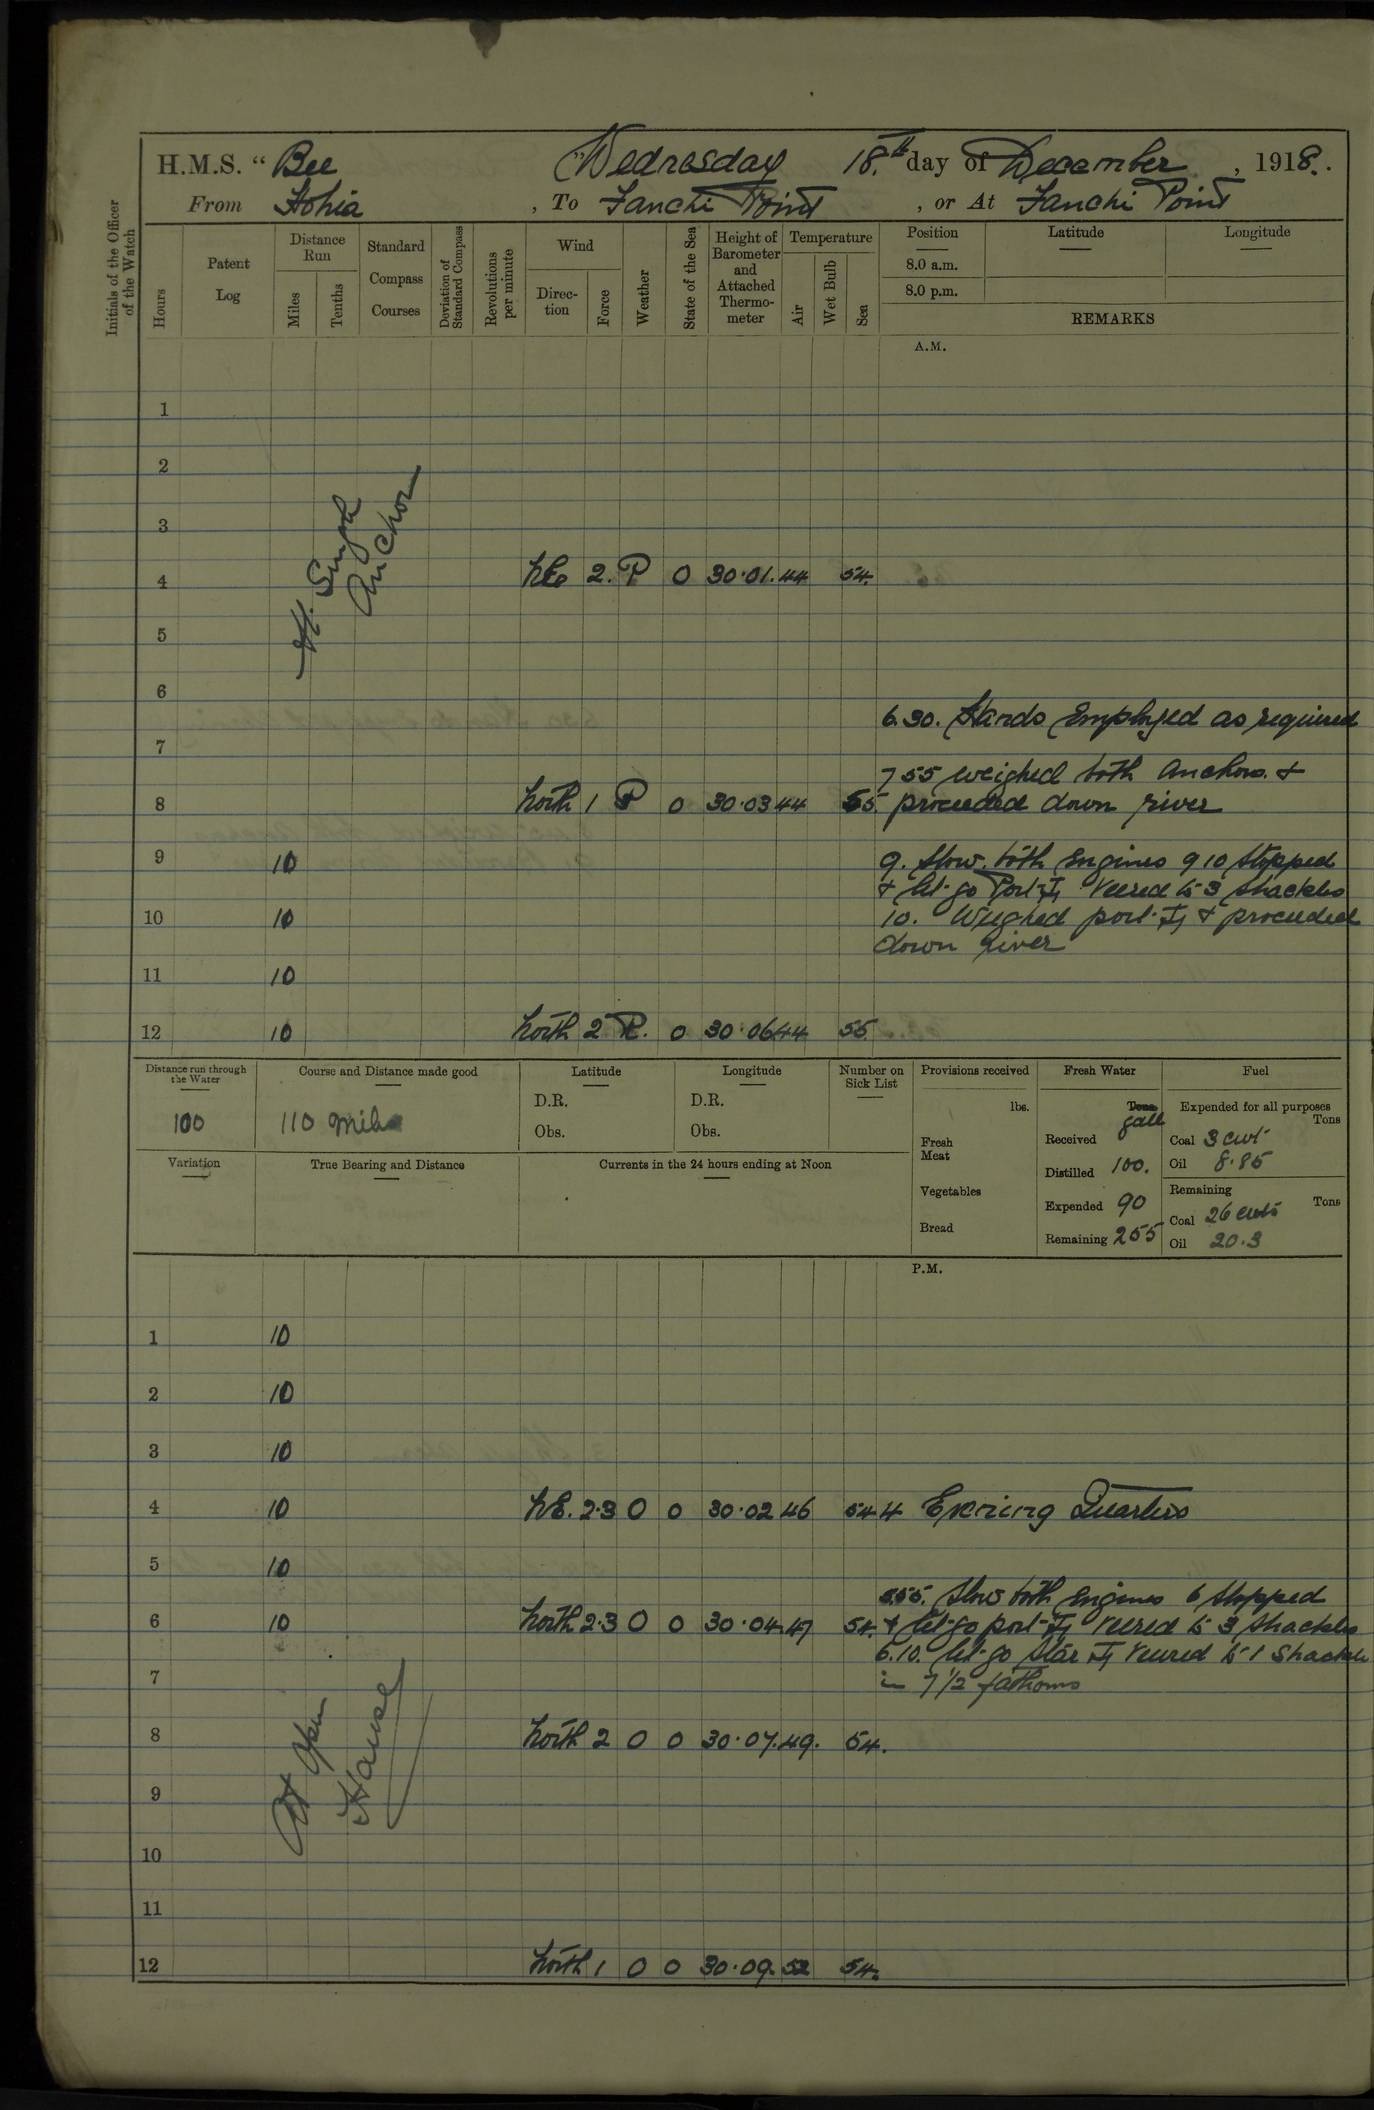 H.M.S. “ Bee Wednesday 18th day of December , 1918.
From Hohia , To Fanchi Point , or At Fanchi Point
Initials of the Officer of the Watch
Hours
Patent Log
Distance Run
Miles
Tenths
Standard Compass Courses
Deviation of Standard Compass
Revolutions per minute
Wind
Direc- tion
Force
Weather
State of the Sea
Height of Barometer and Attached Thermo- meter
Temperature
Air
Wet Bulb
Sea
Position
8.0 a.m.
8.0 p.m.
Latitude
Longitude
REMARKS
A.M.
1
2
3
At Single Anchor
4 NE 2. P 0 30.01. 44 54.
5
6
6.30. Hands Employed as required
7
7 55 weighed both Anchors. &
8 North 1 P 0 30.03 44 55. proceeded down river
9 10 9. Slow both Engines 9 10 Stopped
& let go Port ⚓ Veered to 3 Shackles
10 10 10. Weighed port ⚓ & proceeded
down river
11 10
12 10 North 2 R. 0 30.06 44 55
Distance run through the Water
100
Course and Distance made good
110 miles
Latitude
D.R.
Obs.
Longitude
D.R.
Obs.
Number on Sick List
Provisions received
lbs.
Fresh Meat
Vegetables
Bread
Fresh Water
Tons
galls
Received
Distilled 100.
Expended 90
Remaining 255
Fuel
Expended for all purposes
Tons
Coal 3 cwt
Oil 8.85
Remaining
Tons
Coal 26 cwts
Oil 20.3
Variation
True Bearing and Distance
Currents in the 24 hours ending at Noon
P.M.
1 10
2 10
3 10
4 10 NE. 2.3 0 0 30.02 46 54 4 Evening Quarters
5 10
5.55. Slow both Engines 6 Stopped
6 10 North 2.3 0 0 30.04. 47 54. & let go port ⚓ Veered to 3 Shackles
6.10. let go Star ⚓ Veered to 1 Shackle
7 in 7 1/2 fathoms
8 North 2 0 0 30.07. 49. 54.
At Open Hawse
9
10
11
12 North 1 0 0 30.09. 52 54.